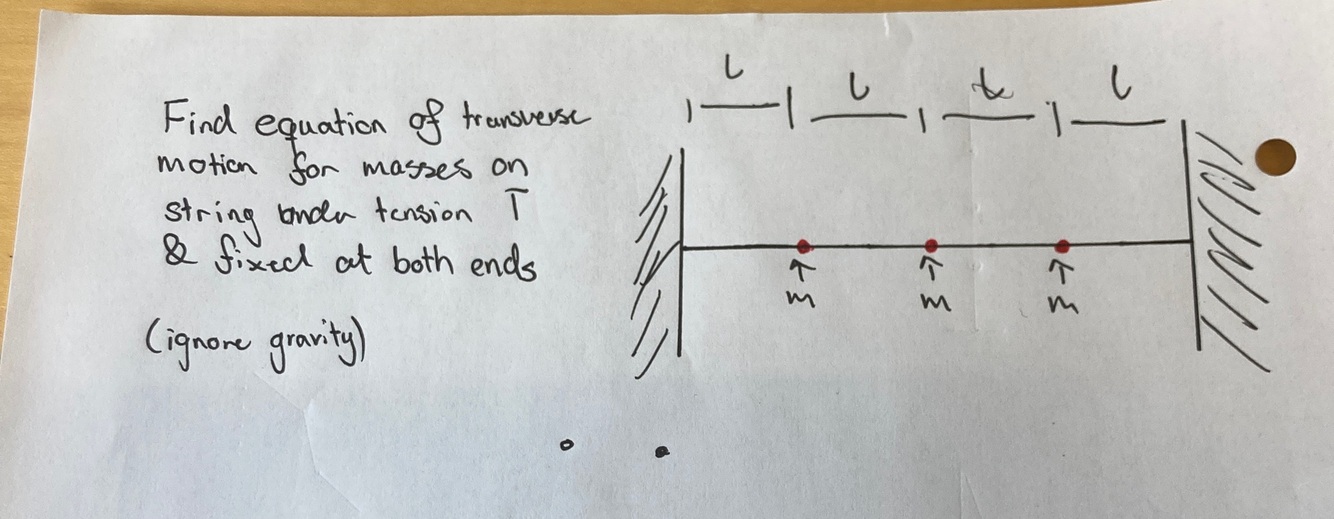 Find equation of transverse
motion for masses on
string under tension T
& fixed at both ends
(ignore gravity)
l l l l
m m m